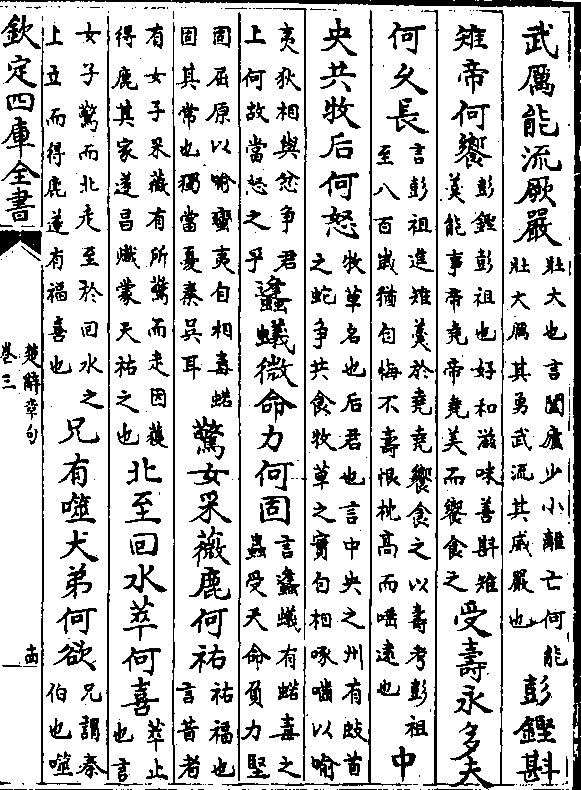 武厲能流厥嚴壯大也言闔廬少小離亡何能壯大厲其勇武流其威嚴也彭鏗斟
雉帝何饗彭鏗彭祖也好和滋味善斟雉羹能事帝堯帝堯美而饗食之受壽永多夫
何久長言彭祖進雉羹於堯堯饗食之以壽考彭祖至八百歲猶自悔不壽恨枕高而唾遠也中
央共牧后何怒牧草名也后君也言中央之州有歧首之蛇爭共食牧草之實自相啄嚙以喻
夷狄相與忿爭君上何故當怒之乎蠭蟻微命力何固言蠭蟻有螫毒之蟲受天命負力堅
固屈原以喻蠻夷自相毒螫固其常也獨當憂秦吳耳驚女采薇鹿何祐祐福也言昔者
有女子采薇有所驚而走因獲得鹿其家遂昌熾蒙天祐之也北至回水萃何喜萃止也言
女子驚而北走至於回水之上止而得鹿遂有福喜也兄有噬犬弟何欲兄謂秦伯也噬
欽定四庫全書
楚辭章句
卷三
十四